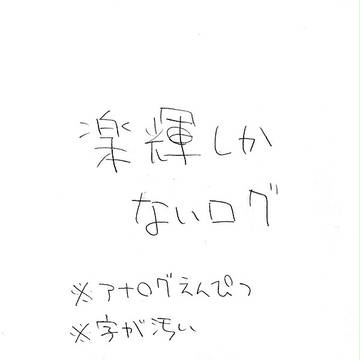 楽輝しか
ないログ
※アナログえんぴつ
※字が汚い